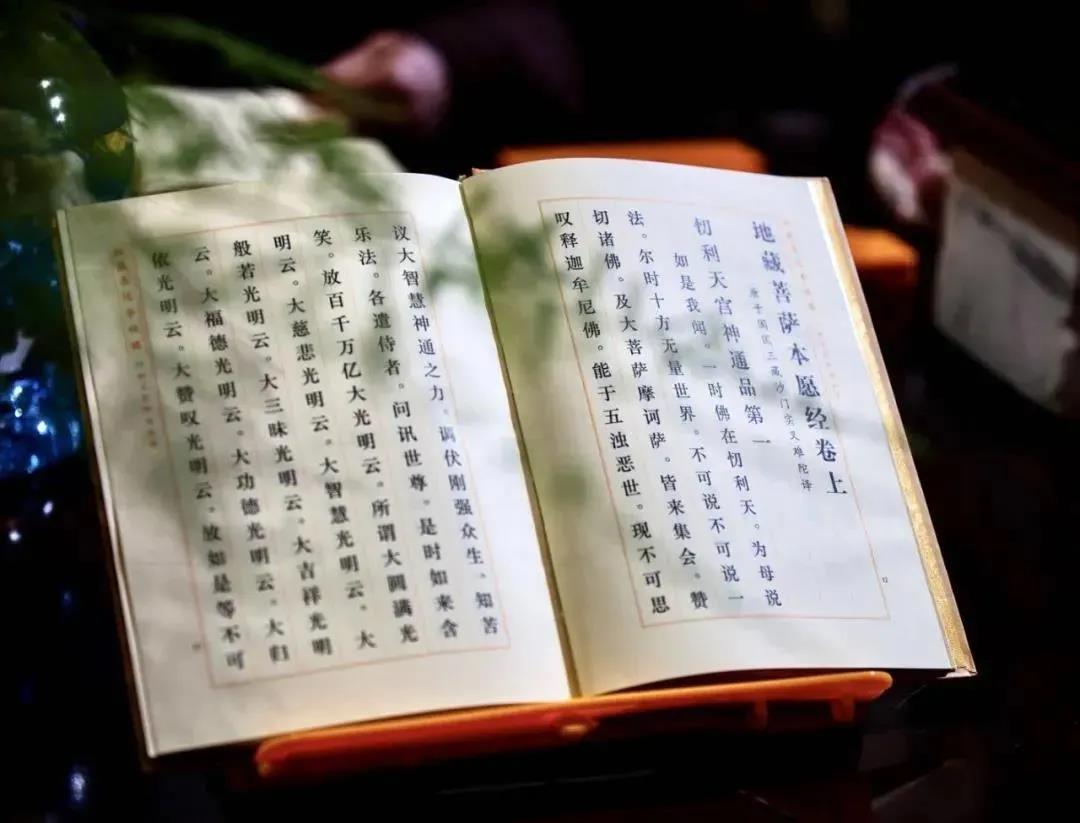 地藏菩萨本愿经卷上
唐于阗国三藏沙门实叉难陀译
忉利天宫神通品第一
如是我闻。一时佛在忉利天。为母说
法。尔时十方无量世界。不可说不可说一
切诸佛。及大菩萨摩诃萨。皆来集会。赞
叹释迦牟尼佛。能于五浊恶世。现不可思
12
议大智慧神通之力。调伏刚强众生。知苦
乐法。各遣侍者。问讯世尊。是时如来含
笑。放百千万亿大光明云。所谓大圆满光
明云。大慈悲光明云。大智慧光明云。大
般若光明云。大三昧光明云。大吉祥光明
云。大福德光明云。大功德光明云。大归
依光明云。大赞叹光明云。放如是等不可